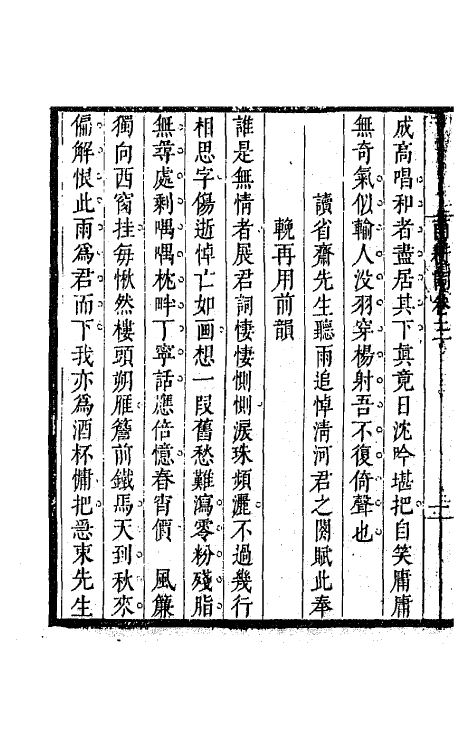 成高唱和者盡居其下眞竟日沈吟堪把自笑庸庸
無奇氣似輸人没羽穿楊射吾不復倚聲也
讀省齋先生聽雨追悼淸河君之闋賦此奉
輓再用前韻
誰是無情者展君詞悽悽惻惻淚珠頻灑不過幾行
相思字傷逝悼亡如画想一段舊愁難瀉零粉殘脂
無尋處剩喁喁枕畔丁寧話應倍憶春宵價 風簾
獨向西窗挂每愀然樓頭朔雁簷前鐵馬天到秋來
偏解恨此雨爲君而下我亦爲酒杯慵把惡柬先生